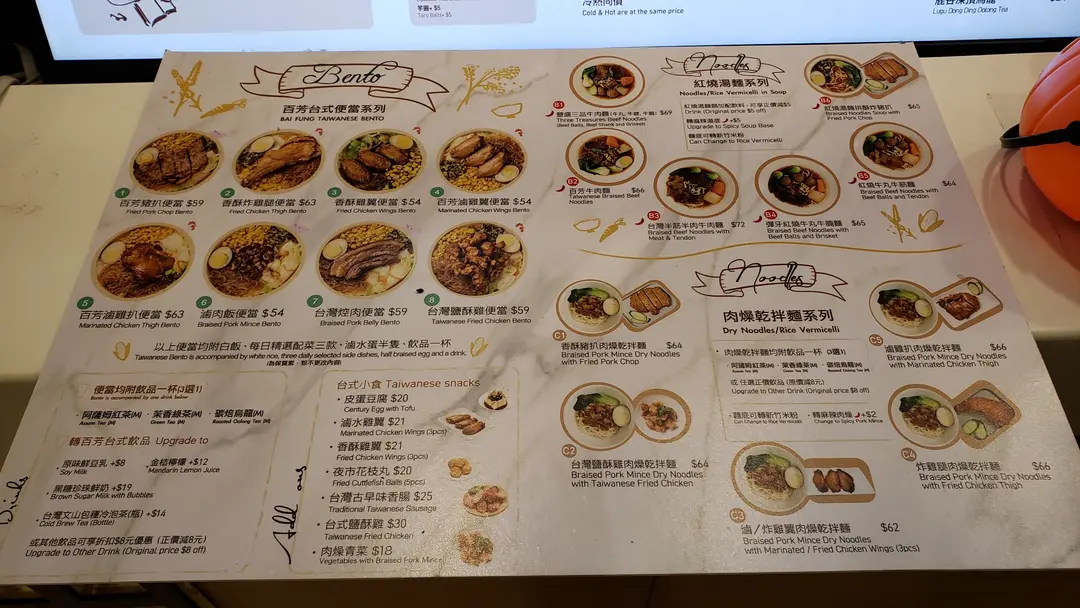 芋圓+ $5
Taro Balls+ $5
冷熱同價
Cold & Hot are at the same price
Lugu Dong Ding Oolong Tea
Bento
百芳台式便當系列
BAI FUNG TAIWANESE BENTO
1 百芳豬扒便當 $59
Fried Pork Chop Bento
2 香酥炸雞腿便當 $63
Fried Chicken Thigh Bento
3 香酥雞翼便當 $54
Fried Chicken Wings Bento
4 百芳滷雞翼便當 $54
Marinated Chicken Wings Bento
5 百芳滷雞扒便當 $63
Marinated Chicken Thigh Bento
6 滷肉飯便當 $54
Braised Pork Mince Bento
7 台灣焢肉便當 $59
Braised Pork Belly Bento
8 台灣鹽酥雞便當 $59
Taiwanese Fried Chicken Bento
以上便當均附白飯、每日精選配菜三款、滷水蛋半隻、飲品一杯
Taiwanese Bento is accompanied by white rice, three daily selected side dishes, half braised egg and a drink.
便當均附飲品一杯(3選1)
Bento is accompanied by one drink below
· 阿薩姆紅茶(M) · 茉香綠茶(M) · 碳焙烏龍(M)
Assam Tea (M) Green Tea (M) Roasted Oolong Tea (M)
轉百芳台式飲品 Upgrade to
· 原味鮮豆乳 +$8 · 金桔檸檬 +$12
Soy Milk Mandarin Lemon Juice
· 黑糖珍珠鮮奶 +$19
Brown Sugar Milk with Bubbles
· 台灣文山包種冷泡茶(瓶) +$14
Cold Brew Tea (Bottle)
或其他飲品可享折扣$8元優惠 (正價減8元)
Upgrade to Other Drink (Original price $8 off)
Drinks
Add ons
台式小食 Taiwanese snacks
· 皮蛋豆腐 $20
Century Egg with Tofu
· 滷水雞翼 $21
Marinated Chicken Wings (3pcs)
· 香酥雞翼 $21
Fried Chicken Wings (3pcs)
· 夜市花枝丸 $20
Fried Cuttlefish Balls (5pcs)
· 台灣古早味香腸 $25
Traditional Taiwanese Sausage
· 台式鹽酥雞 $30
Taiwanese Fried Chicken
· 肉燥青菜 $18
Vegetables with Braised Pork Mince
Noodles
紅燒湯麵系列
Noodles/Rice Vermicelli in Soup
紅燒湯麵類加配飲料，可享正價減$5
Drink (Original price $5 off)
轉麻辣湯底 +$5
Upgrade to Spicy Soup Base
麵底可轉新竹米粉
Can Change to Rice Vermicelli
B1
豐盛三品牛肉麵 (牛丸,牛腱,牛腩) $69
Three Treasures Beef Noodles
(Beef Balls, Beef Shank and Brisket)
B2
百芳牛肉麵 $66
Taiwanese Braised Beef
Noodles
B3
台灣半筋半肉牛肉麵 $72
Braised Beef Noodles with
Meat & Tendon
B4
彈牙紅燒牛丸牛腩麵 $65
Braised Beef Noodles with
Beef Balls and Brisket
B5
紅燒牛丸牛筋麵 $64
Braised Beef Noodles with
Beef Balls and Tendon
B6
紅燒湯麵拼酥炸豬扒 $65
Braised Noodles Soup with
Fried Pork Chop
Noodles
肉燥乾拌麵系列
Dry Noodles/Rice Vermicelli
· 肉燥乾拌麵均附飲品一杯 (3選1)
· 阿薩姆紅茶(M) · 茉香綠茶(M) · 碳焙烏龍(M)
Assam Tea (M) Green Tea (M) Roasted Oolong Tea (M)
或 任選正價飲品 (原價減8元)
Upgrade to Other Drink (Original price $8 off)
· 麵底可轉新竹米粉 · 轉麻辣肉燥 +$2
Can Change to Rice Vermicelli Change to Spicy Pork Mince
C1
香酥豬扒肉燥乾拌麵 $64
Braised Pork Mince Dry Noodles
with Fried Pork Chop
C2
台灣鹽酥雞肉燥乾拌麵 $64
Braised Pork Mince Dry Noodles
with Taiwanese Fried Chicken
C3
滷／炸雞翼肉燥乾拌麵 $62
Braised Pork Mince Dry Noodles
with Marinated / Fried Chicken Wings (3pcs)
C4
炸雞腿肉燥乾拌麵 $66
Braised Pork Mince Dry Noodles
with Fried Chicken Thigh
C5
滷雞扒肉燥乾拌麵 $66
Braised Pork Mince Dry Noodles
with Marinated Chicken Thigh